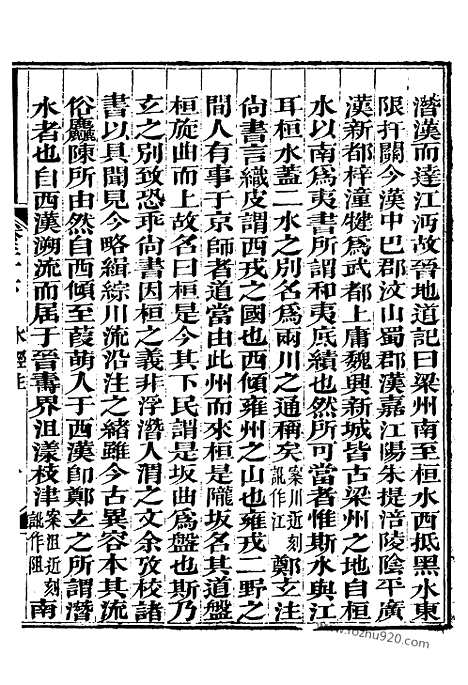 潛漢而達江沔故晉地道記曰梁州南至桓水西抵黑水東
限扞關今漢中巴郡汶山蜀郡漢嘉江陽朱提涪陵陰平廣
漢新都梓潼犍爲武都上庸魏興新城皆古梁州之地自桓
水以南爲夷書所謂和夷底績也然所可當者惟斯水與江
耳桓水蓋二水之別名爲兩川之通稱矣案川近刻訛作江鄭玄注
尙書言織皮謂西戎之國也西傾雍州之山也雍戎二野之
間人有事于京師者道當由此州而來桓是隴坂名其道盤
桓旋曲而上故名曰桓是今其下民謂是坂曲爲盤也斯乃
玄之別致恐乖尙書因桓之義非浮潛入渭之文余攷校諸
書以具聞見今略緝綜川流沿注之緒雖今古異容本其流
俗麤陳所由然自西傾至葭萌入于西漢卽鄭玄之所謂潛
水者也自西漢溯流而屆于晉壽界沮漾枝津案沮近刻訛作阻南
水經注
www.fozhu920.com